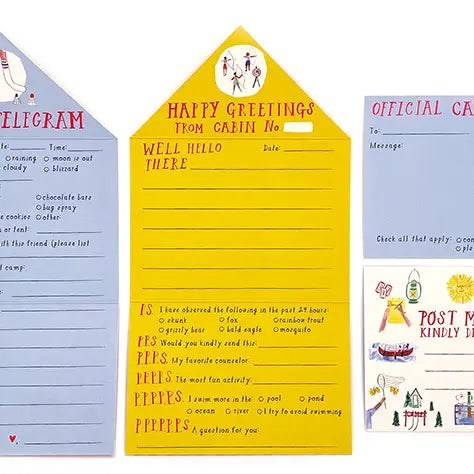 TELEGRAM
Date: Time:
raining moon is out
cloudy blizzard
chocolate bars
bug spray
cookies other:
or tent:
with this friend (please list
t camp:
HAPPY GREETINGS
FROM CABIN No
WELL HELLO Date:
THERE
P.S. I have observed the following in the past 24 hours:
skunk fox rainbow trout
grizzly bear bald eagle mosquito
P.P.S. Would you kindly send this:
P.P.P.S. My favorite counselor:
P.P.P.P.S. The most fun activity:
P.P.P.P.P.S. I swim more in the: pool pond
ocean river I try to avoid swimming
P.P.P.P.P.P.S. A question for you:
OFFICIAL CA
To:
Message:
Check all that apply: con
ple
POST M
KINDLY DE